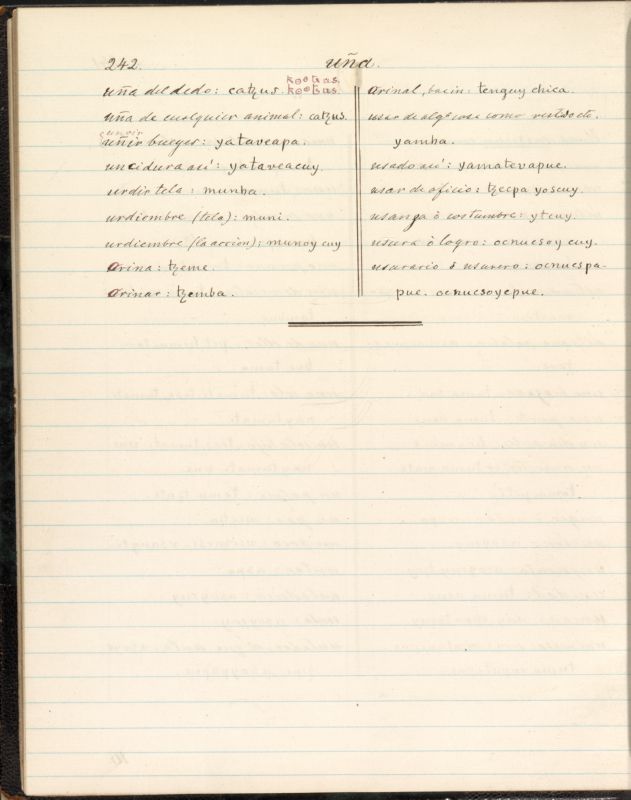 242.
uña.
keetus.
uña del dedo: catzus. keetus.
uña de cualquier animal: catzus.
uncir
uñir bueyes: yataveapa.
uncidura así: yataveacuy.
urdir tela: munba.
urdiembre (tela): muni.
urdiembre (la accion): munoy cuy
Orina: tzeme.
Orinar: tzemba.
Orinal, bacin: tenguy chica.
usar de algª cosa como vestido etc.
yamba.
usado así: yamatevapue.
usar de oficio: tzecpa yoscuy.
usanza ò costumbre: ytcuy.
usura ò logro: ocnucsoy cuy.
usurario ò usurero: ocnucspa-
pue. ocnucsoyepue.